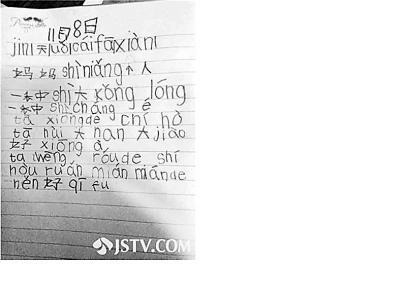 11月8日
jīn天wǒ cái fā xiàn
妈妈shì niǎng个人
一种shì大kǒng lóng
一种shì cháng é
tā xiōng de chí hò
tā huì大hǎn大jiào
好xiōng á
ta wēng róu de shí
hou ruǎn mián mián de
hěn好qī fu
JSTV.COM